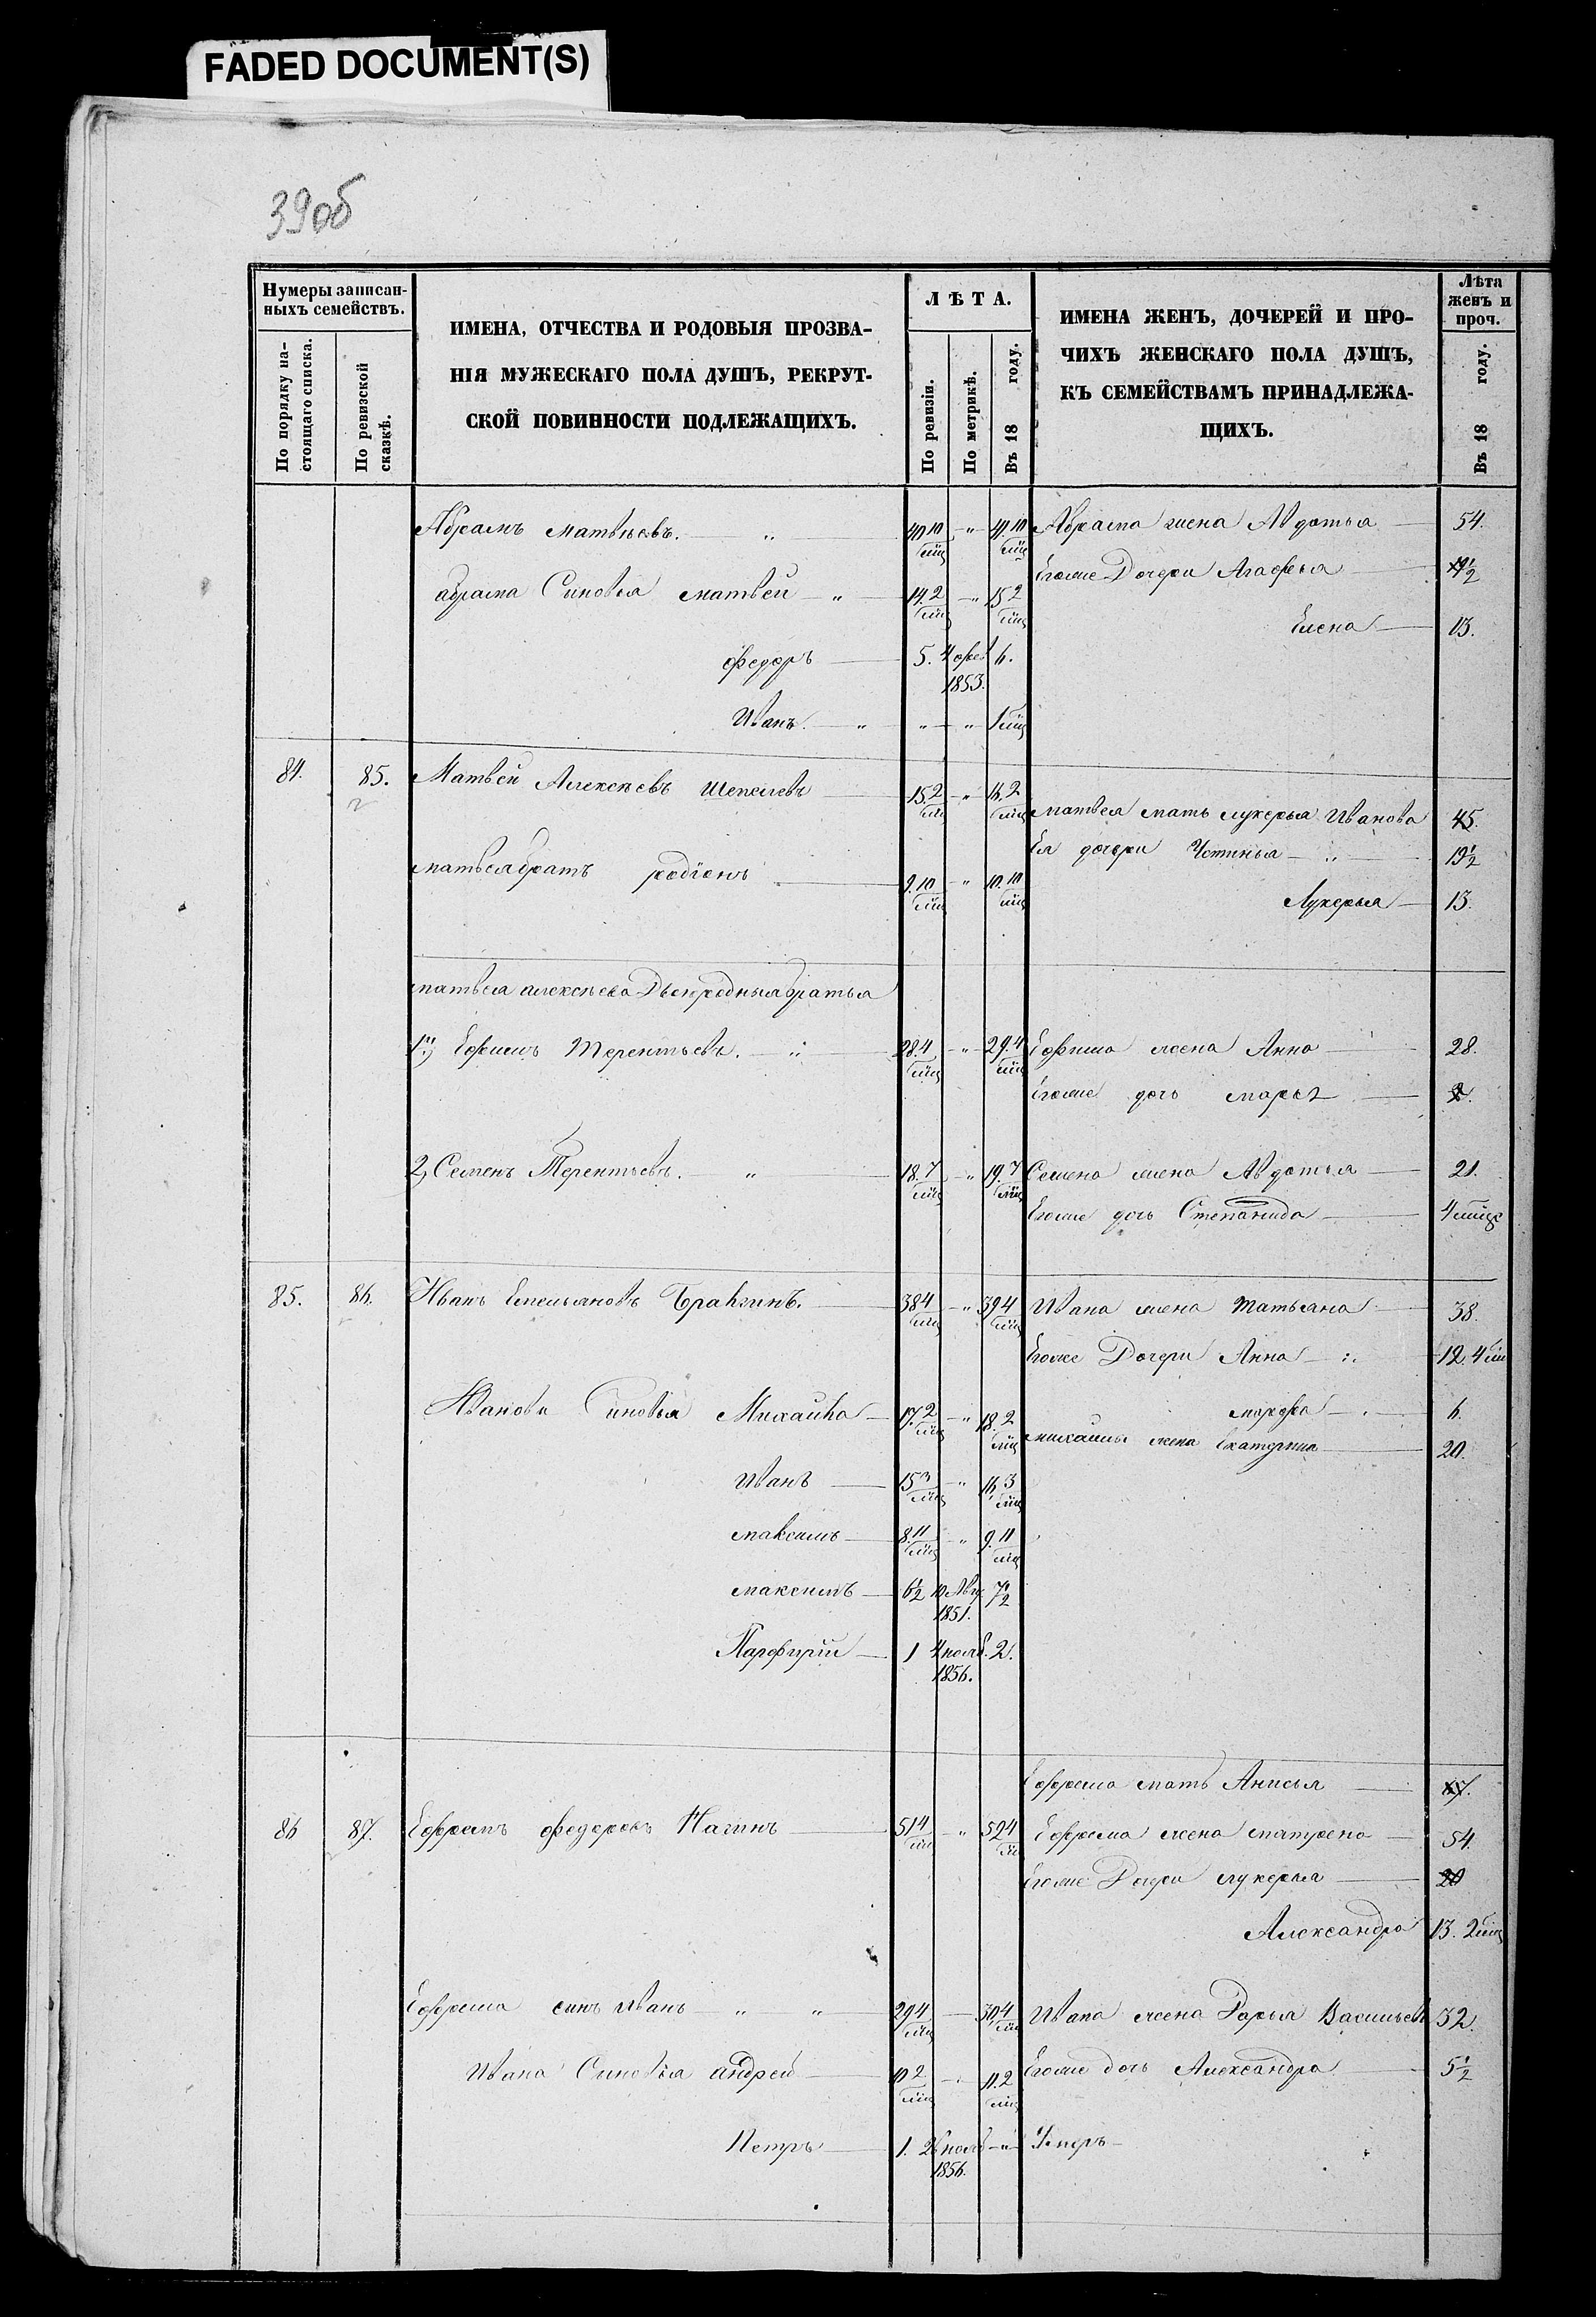 FADED DOCUMENT(S)
39об
Нумеры записан-
ныхъ семействъ.
По порядку на-
стоящаго списка.
По ревизской
сказкѣ.
ИМЕНА, ОТЧЕСТВА И РОДОВЫЯ ПРОЗВА-
НІЯ МУЖЕСКАГО ПОЛА ДУШЪ, РЕКРУТ-
СКОЙ ПОВИННОСТИ ПОДЛЕЖАЩИХЪ.
ЛѢТА.
По ревизіи.
По метрикѣ.
Въ 18 году.
ИМЕНА ЖЕНЪ, ДОЧЕРЕЙ И ПРО-
ЧИХЪ ЖЕНСКАГО ПОЛА ДУШЪ,
КЪ СЕМЕЙСТВАМЪ ПРИНАДЛЕЖА-
ЩИХЪ.
Лѣта
женъ и
проч.
Въ 18 году.
Абрамъ Матвѣевъ. 40 10/мц " 41 10/мц Абрама жена Авдотья 54.
Егоже Дочери Агафья
абрама Синовья матвей " 14. 2/мц " 15 2/мц
Елена 13.
федоръ 5. 4 фев 1853. 6.
Иванъ. " " " 1 мц
84. 85. Матвей Алексѣевъ Шепелевъ 15. 2/мц " 16. 2/мц
матвея мать лукерья Иванова 45.
Ея дочери Устинья " 19 1/2
матвея братъ родіонъ 9. 10/мц " 10. 10/мц
Лукерья 13.
матвея алексѣева Двоюродныя братья
1й) Ефимъ Терентьевъ. " 28. 4/мц " 29. 4/мц Ефима жена Анна 28.
Егоже дочь марья 2.
2) Семенъ Терентьевъ. " 18. 7/мц " 19. 7/мц Семена жена Авдотья 21.
Егоже дочь Степанида 4 мца
85. 86. Иванъ Емельяновъ Брагинъ. 38 4/мц " 39 4/мц Ивана жена Татьяна 38.
Егоже Дочери Анна 12. 4 мц
Иванова Синовья Михаила 17. 2/мц " 18. 2/мц
марфа 6.
михаилы жена Екатерина 20.
Иванъ 15 3/мц " 16 3/мц
максимъ 8. 11/мц " 9. 11/мц
максимъ 6 1/2 10 Авгу 1851. 7 1/2
Парфирій 1 4 нояб. 1856. 2.
Ефрема мать Анисья 67.
86 87. Ефремъ федоровъ Нагинъ 51 4/мц " 52 4/мц Ефрема жена матрена 54.
Егоже Дочери лукерья 20
Александра 13. 2 мц
Ефрема синъ Иванъ " " 29 4/мц 30, 4/мц Ивана жена Дарья Васильев 32.
Ивана Синовья андрей 10 2/мц 11. 2/мц Егоже дочь Александра 5 1/2
Петръ 1. нояб 1856. " Умеръ